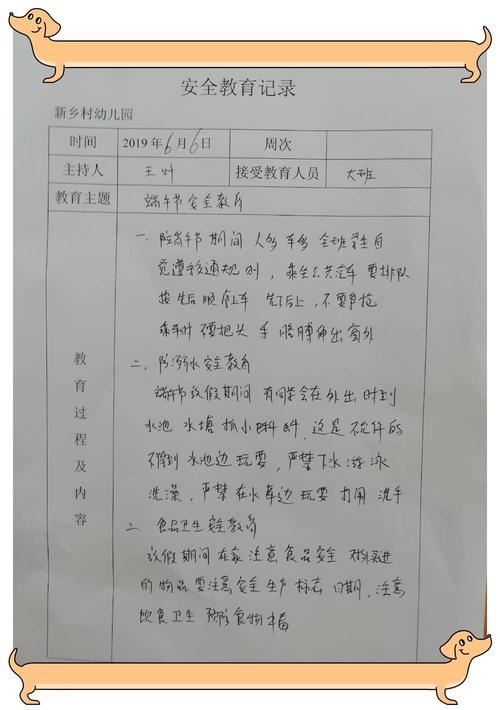 安全教育记录
新乡村幼儿园
时间 2019年6月6日 周次
主持人 王叶 接受教育人员 大班
教育主题 端午节安全教育
教育过程及内容
一、端午节期间 人多 车多 全班学生自
觉遵守交通规则，乘坐公共汽车 要排队
按先后顺序上车 先下后上，不要争抢
乘车时 不要把头 手 胳膊伸出窗外
二、防溺水安全教育
端午节放假期间 有同学会在外出时到
水池 水塘 抓小蝌蚪，这是不允许的
不得到 水池边 玩耍，严禁下水游泳
洗澡，严禁在水库边 玩耍 打闹 洗手
三、食品卫生安全教育
放假期间在家 注意食品安全 对购进
的物品 要注意安全 生产 标志 日期，注意
饮食卫生 预防食物中毒